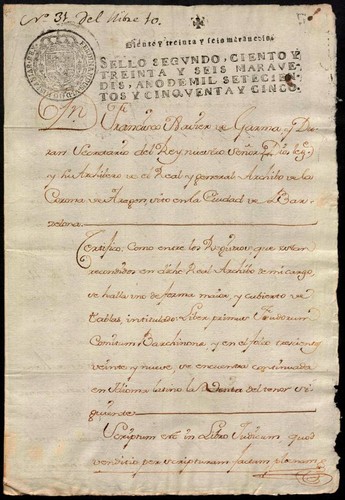 Nº 31 Del Libre 10.
Ciento y treinta y seis maravedis.
SELLO SEGVNDO, CIENTO Y
TREINTA Y SEIS MARAVE-
DIS, AÑO DE MIL SETECIEN-
TOS Y CINQVENTA Y CINCO.
Dn Francisco Xavier de Garma, y Du-
ran Secretario del Rey nuestro Señor
y su Archivero de el Real, y general Archivo de la
Corona de Aragon, sito en la Ciudad de Bar-
celona.
Certifico: Como entre los Registros que estan
recondidos en dicho Real Archibo de mi cargo,
se halla uno de forma maior, y cubierto de
tablas, intitulado: Liber primus Feudorum
Comitum Barchinonæ, y en el folio trescientos
veinte y nueve, se encuentra continuada
en Idioma latino la Venta del tenor si-
guiente
Scriptum est in Libro Judicum quod
venditio per scripturam factam